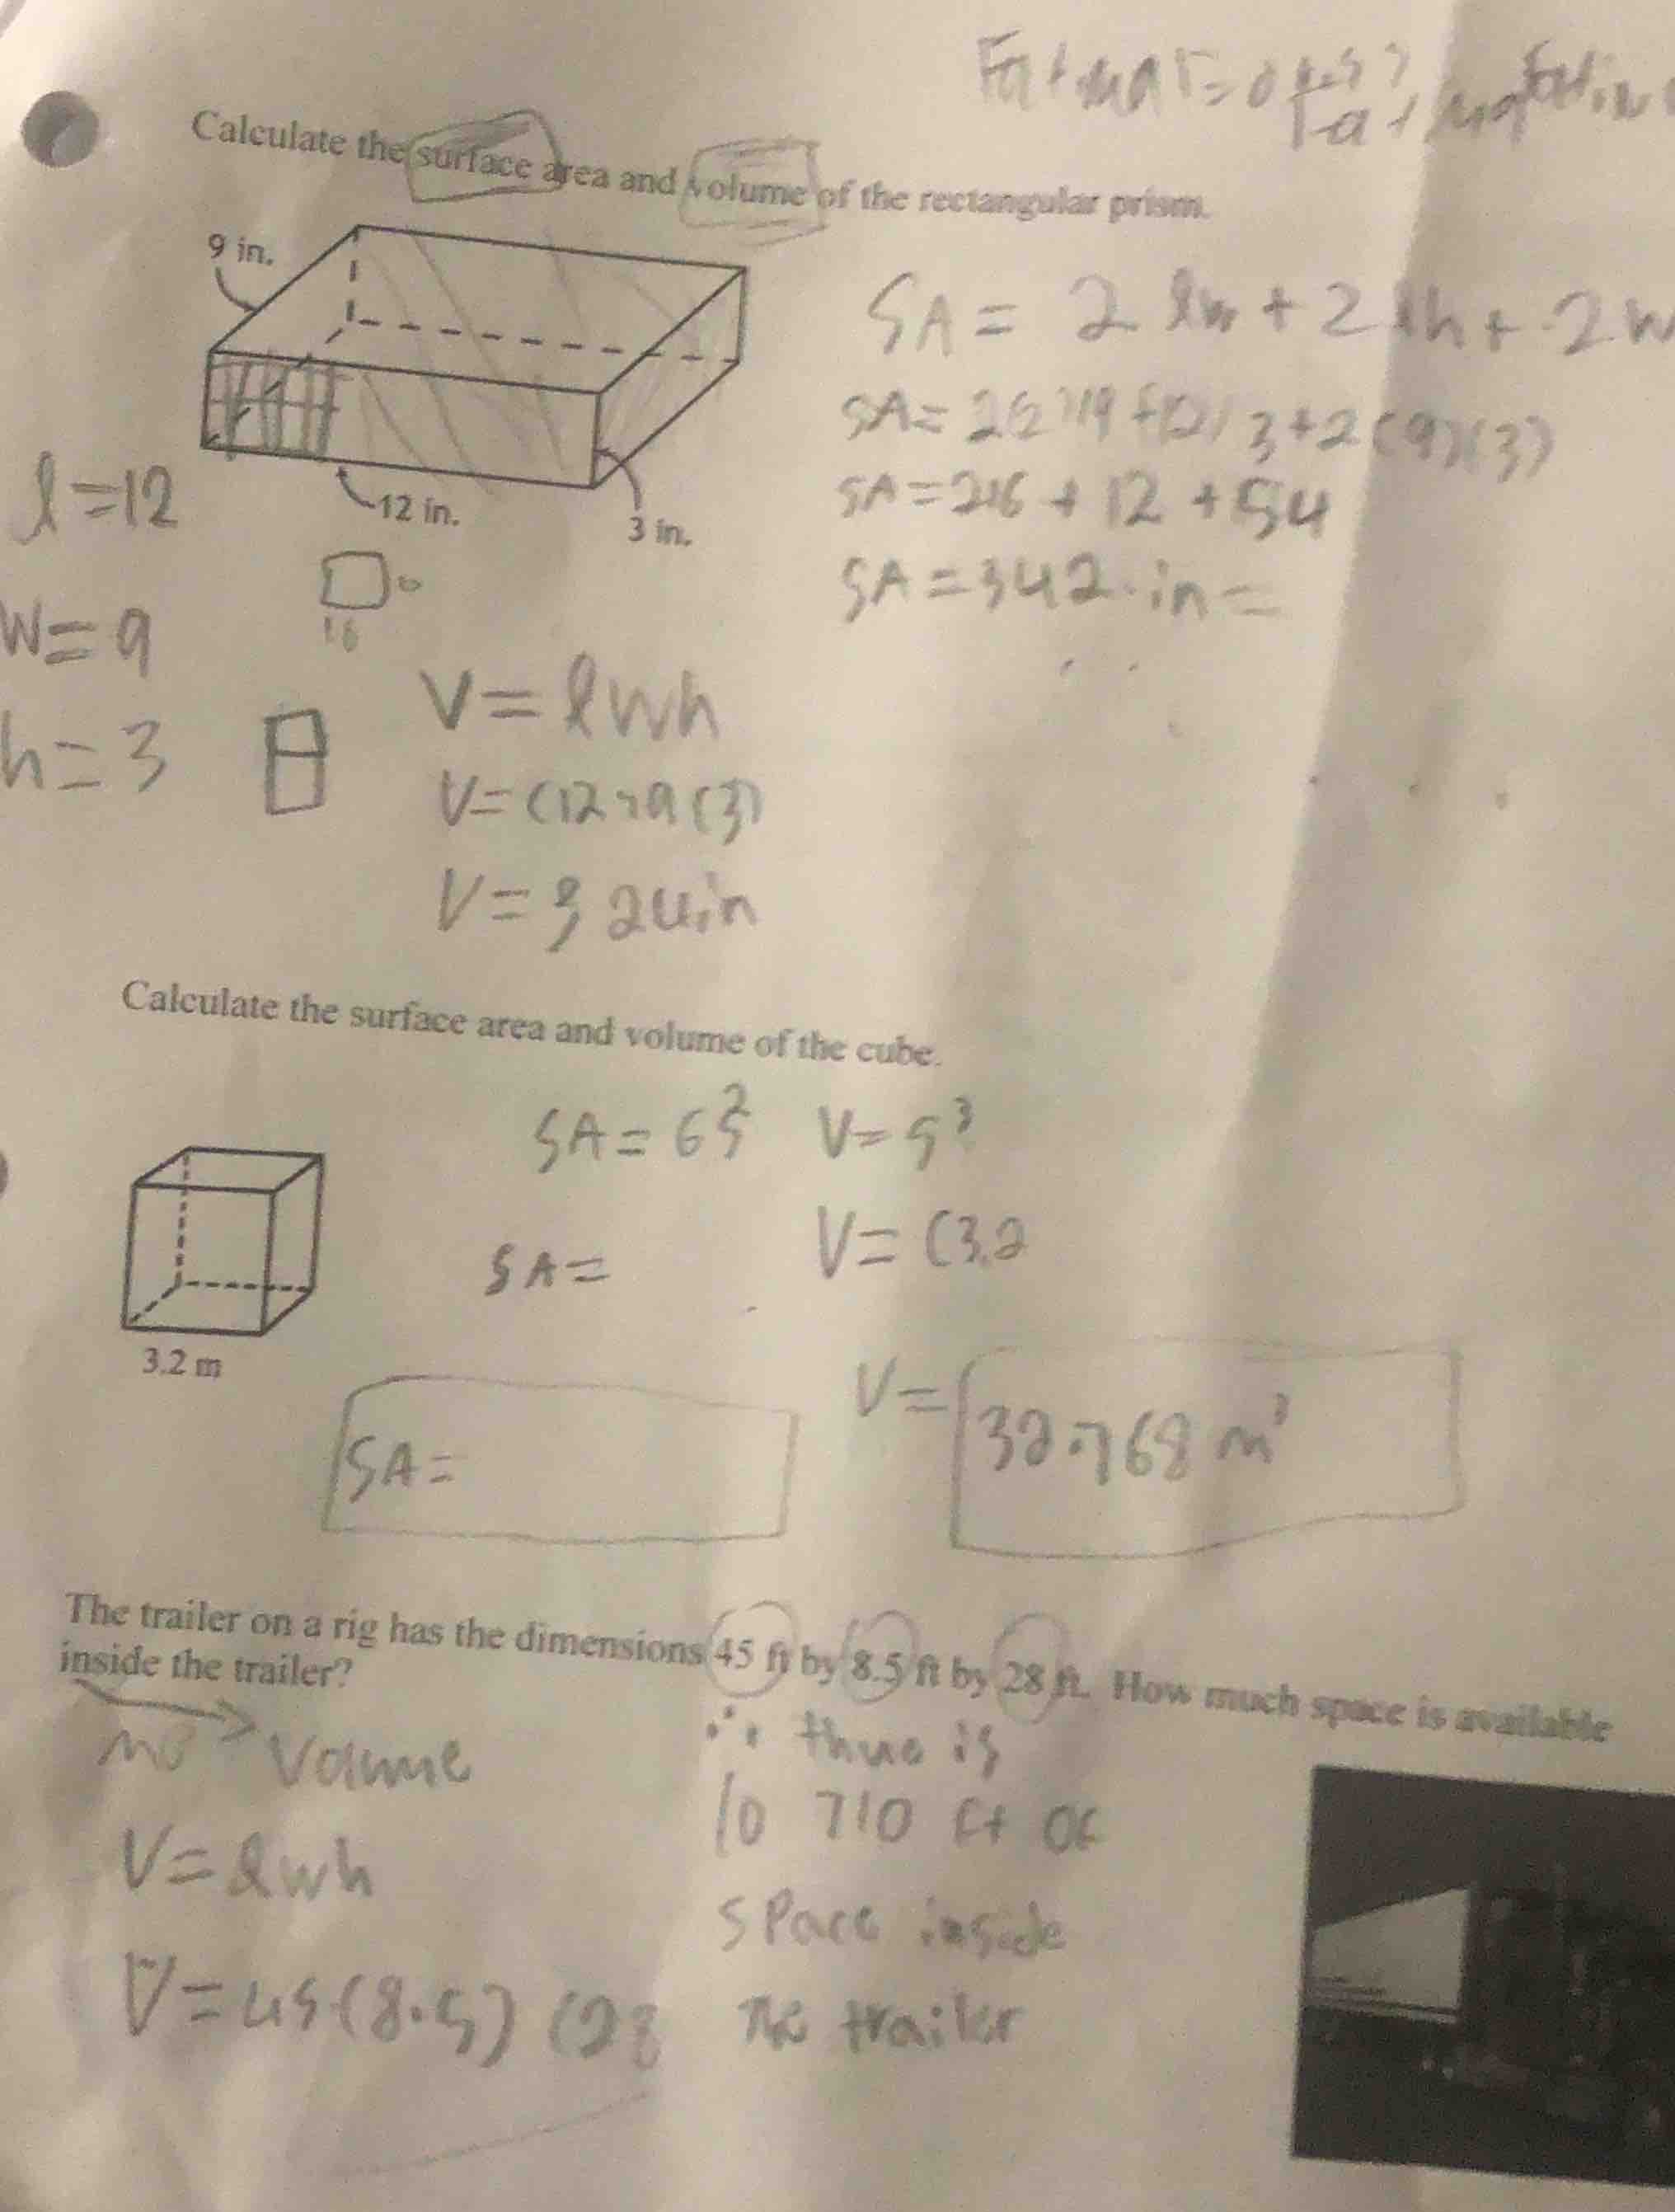 Calculate the surface area and volume of the rectangular prism.
9 in.
12 in.
3 in.
l=12
W=9
h=3
SA= 2 lw+2 lh+ 2 w
3+2(9)(3)
SA=216 + 12 +54
SA=342 in
V=lwh
V=(12
V=324in
Calculate the surface area and volume of the cube.
3.2 m
SA=6s²
SA=
SA=
V=s³
V=(3.2
V=
32.768 m³
The trailer on a rig has the dimensions 45 ft by 8.5 ft by 28 ft. How much space is available
inside the trailer?
Volume
V=lwh
V=45(8.5)(28
∴ is
10 710 ft of
space inside
the trailer